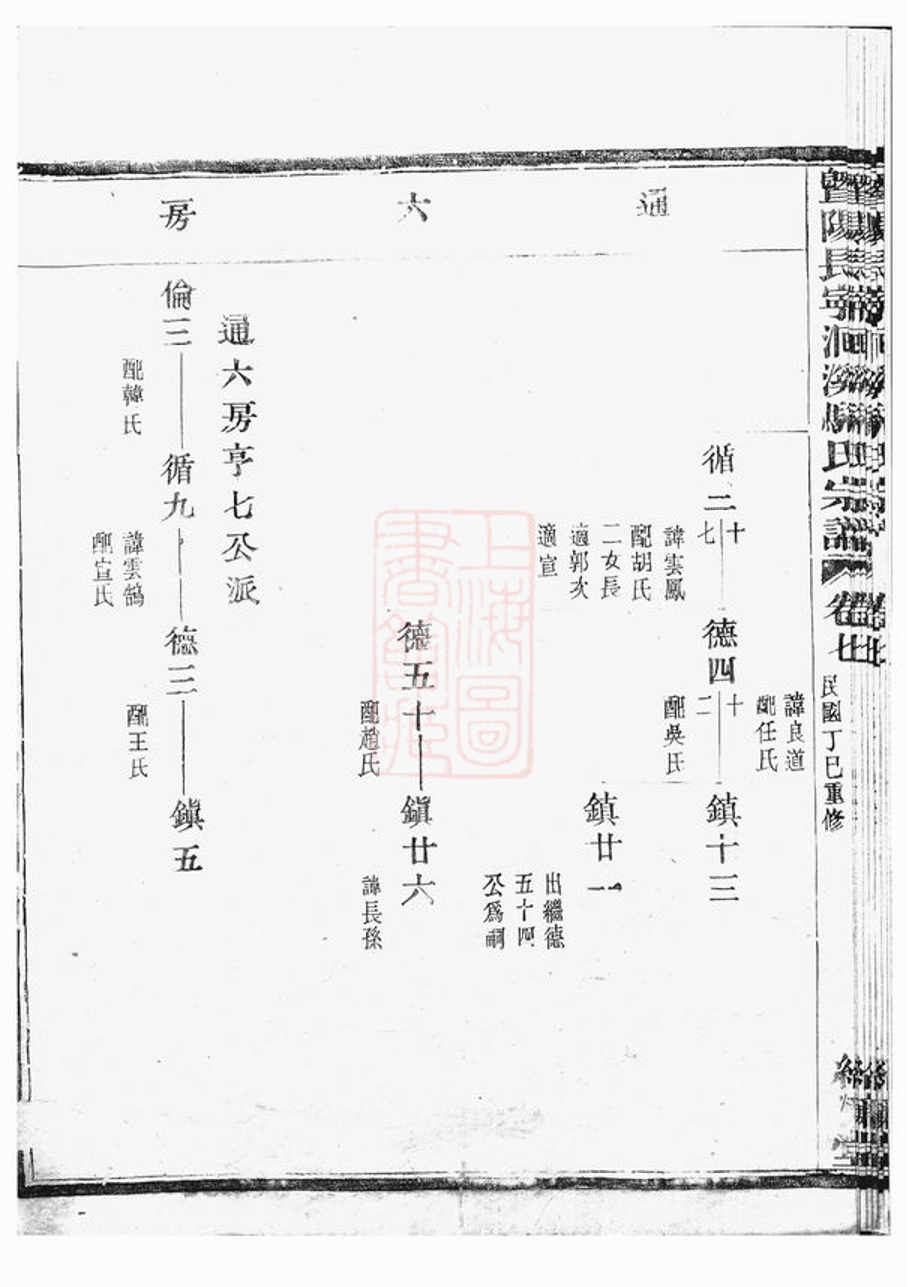 暨陽長寧澗溪馮氏宗譜 卷七 民國丁巳重修
通六房
諱良道
配任氏
循二十七
諱雲鳳
配胡氏
二女長
適郭次
適宣
德四十二
配吳氏
鎮十三
鎮廿一
出繼德
五十四
公爲嗣
德五十
配趙氏
鎮廿六
諱長孫
通六房亨七公派
倫三
配韓氏
循九
諱雲鵠
配宣氏
德三
配王氏
鎮五
上海圖書館藏